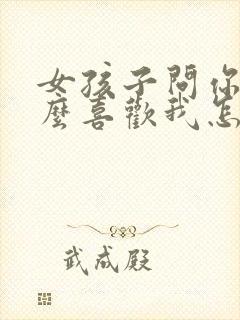 女孩子問你
麼喜歡我怎
武成殿